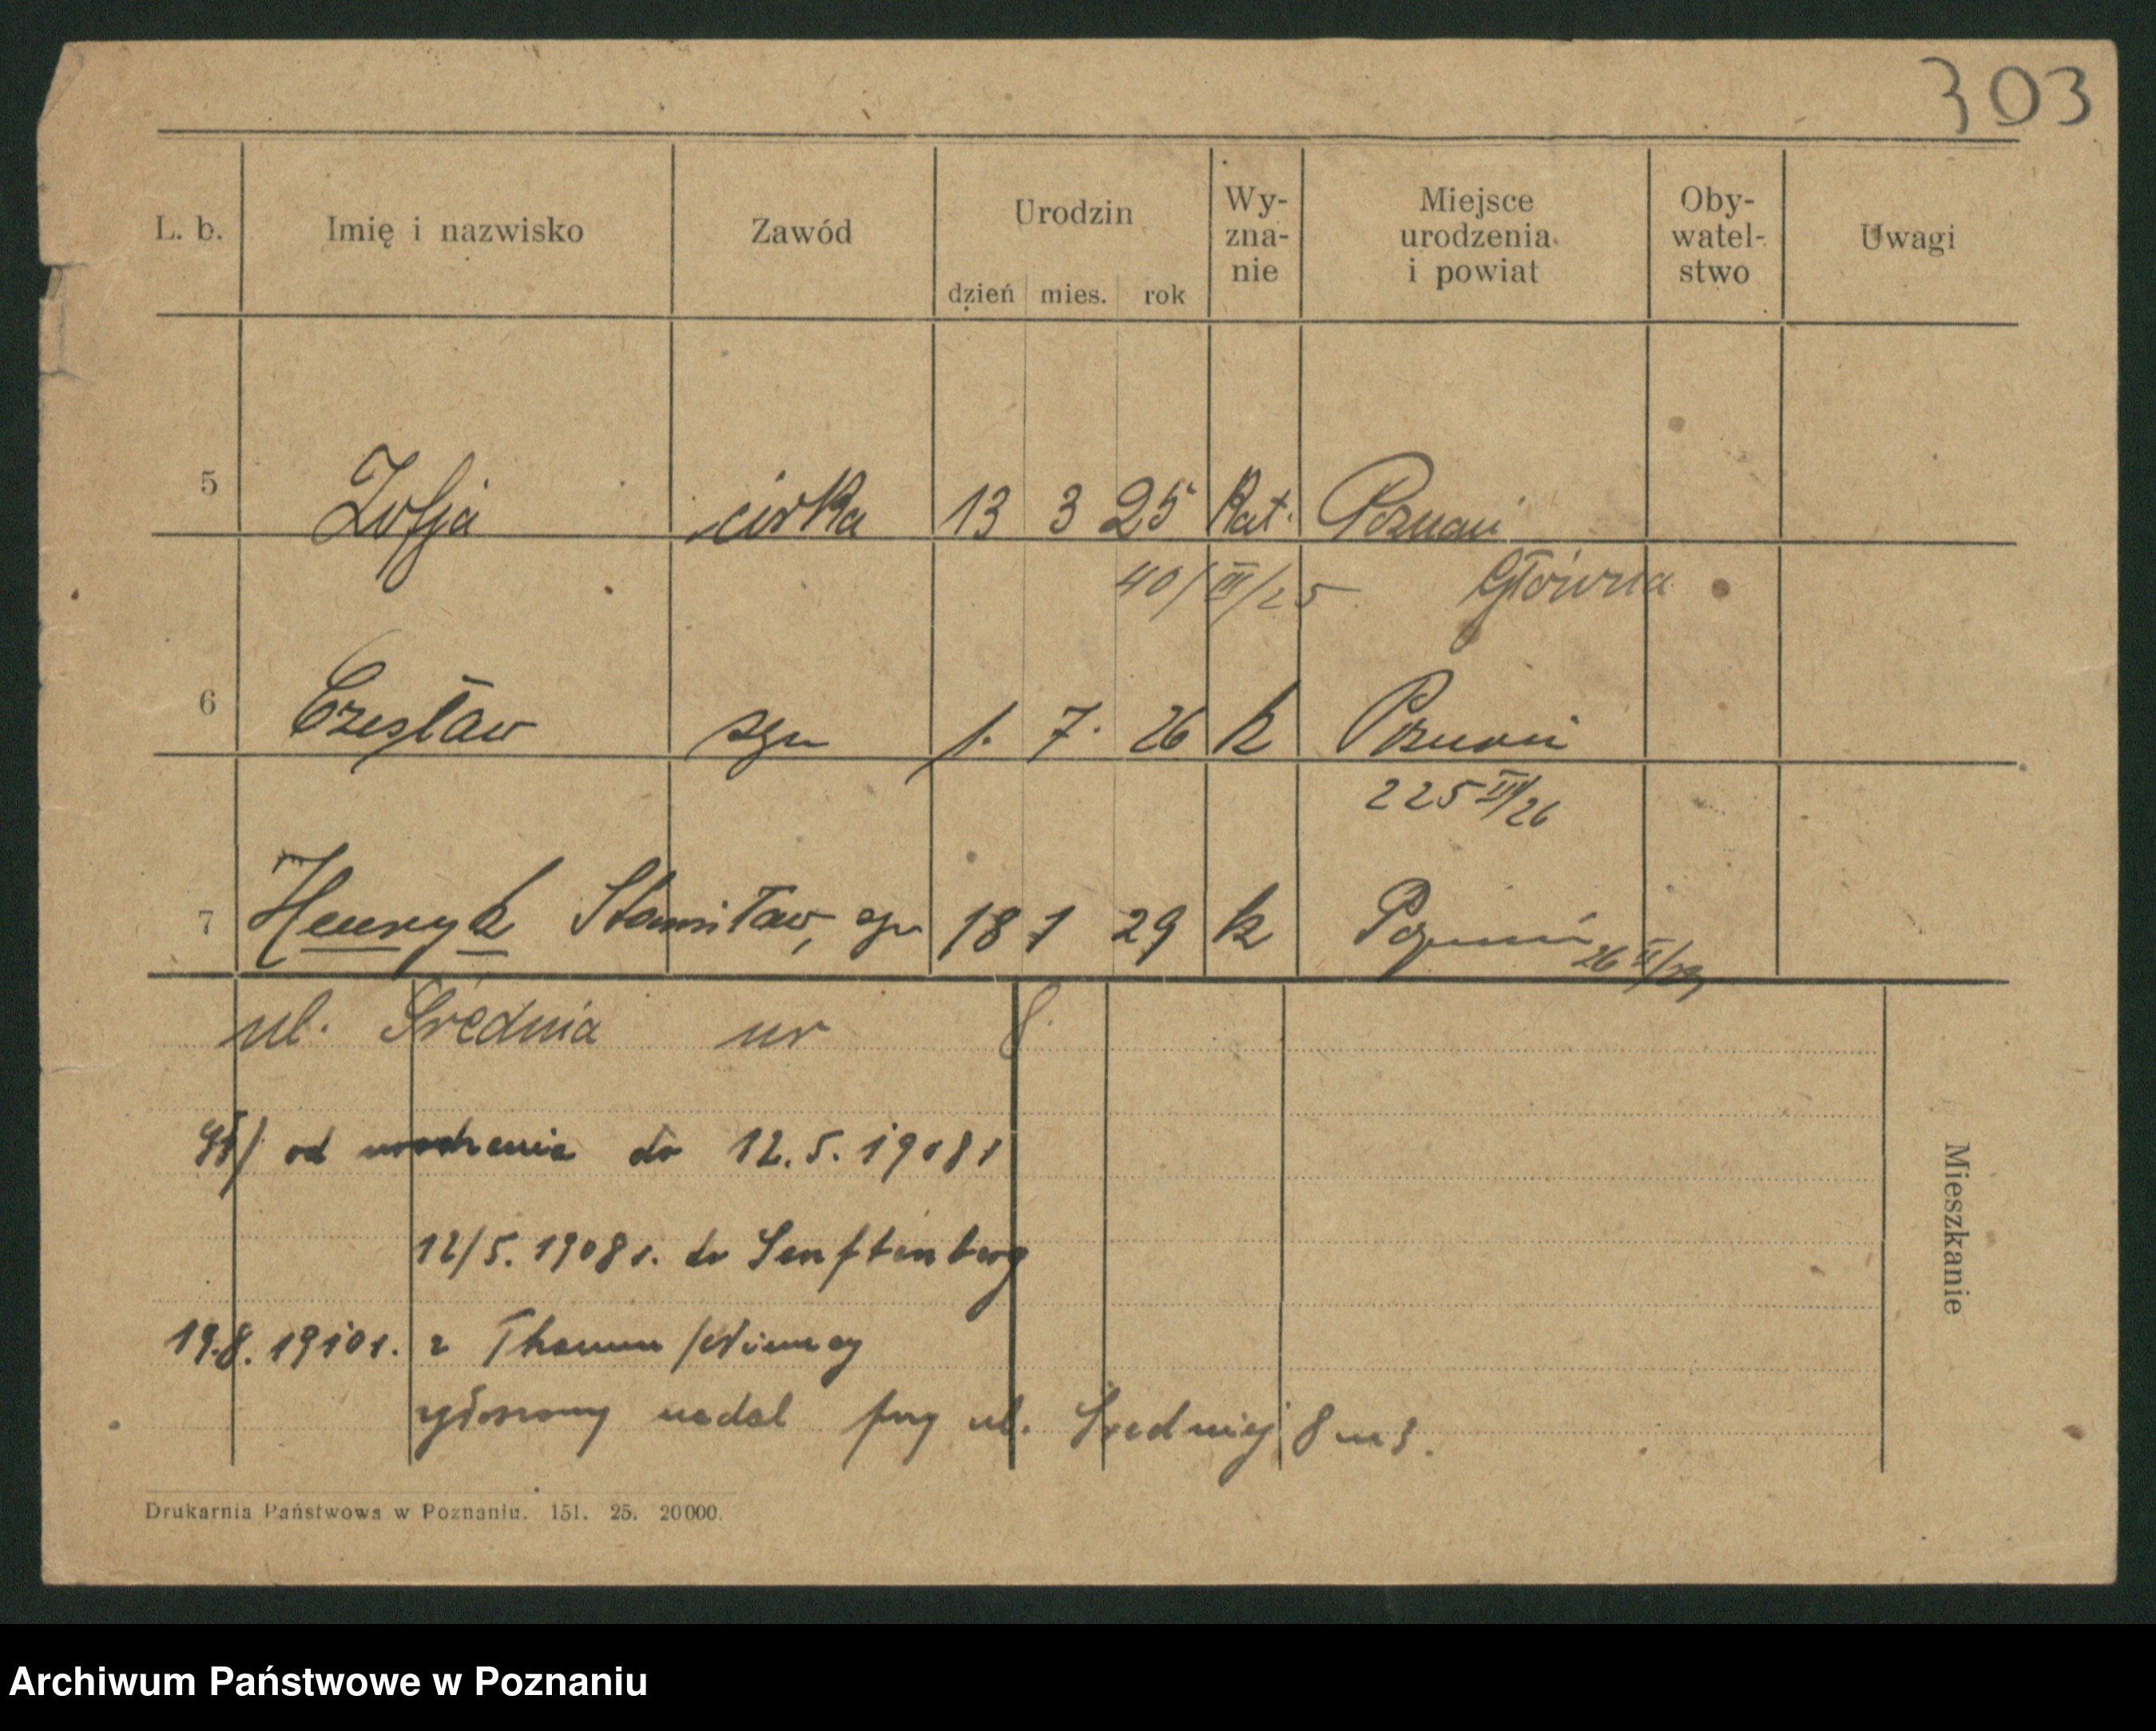 303
L. b. Imię i nazwisko Zawód Urodzin Wy-zna-nie Miejsce urodzenia i powiat Oby-watel-stwo Uwagi
dzień mies. rok
5 Zofja córka 13 3 25 Kat. Poznań
40/III/25 Główna
6 Czesław syn 1. 7. 26 k Poznań
225 III/26
7 Henryk Stanisław, syn 18 1 29 k Poznań 26 II/29
ul. Średnia nr 8.
od urodzenia do 12.5.1908 r
12/5. 1908 r. do Senftenberg
19.8.1910 r. z /Niemcy
zgłoszony nadal przy ul. Średniej 8 m 3.
Mieszkanie
Drukarnia Państwowa w Poznaniu. 151. 25. 20000.
Archiwum Państwowe w Poznaniu